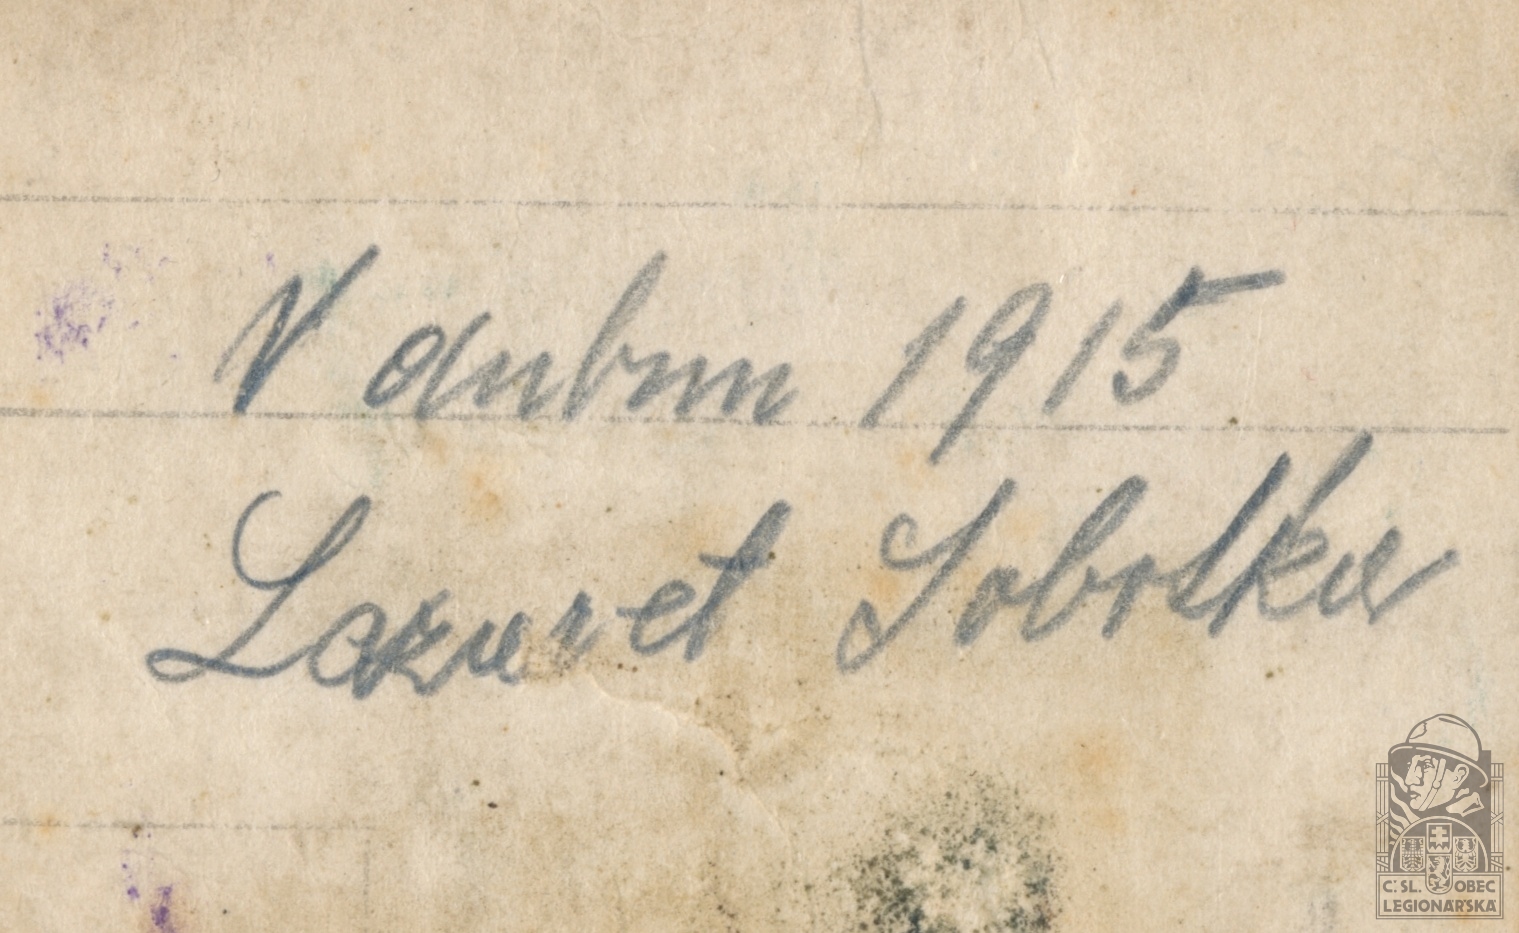 V dubnu 1915
Lazaret Sobotka
Č. SL. OBEC
LEGIONÁŘSKÁ